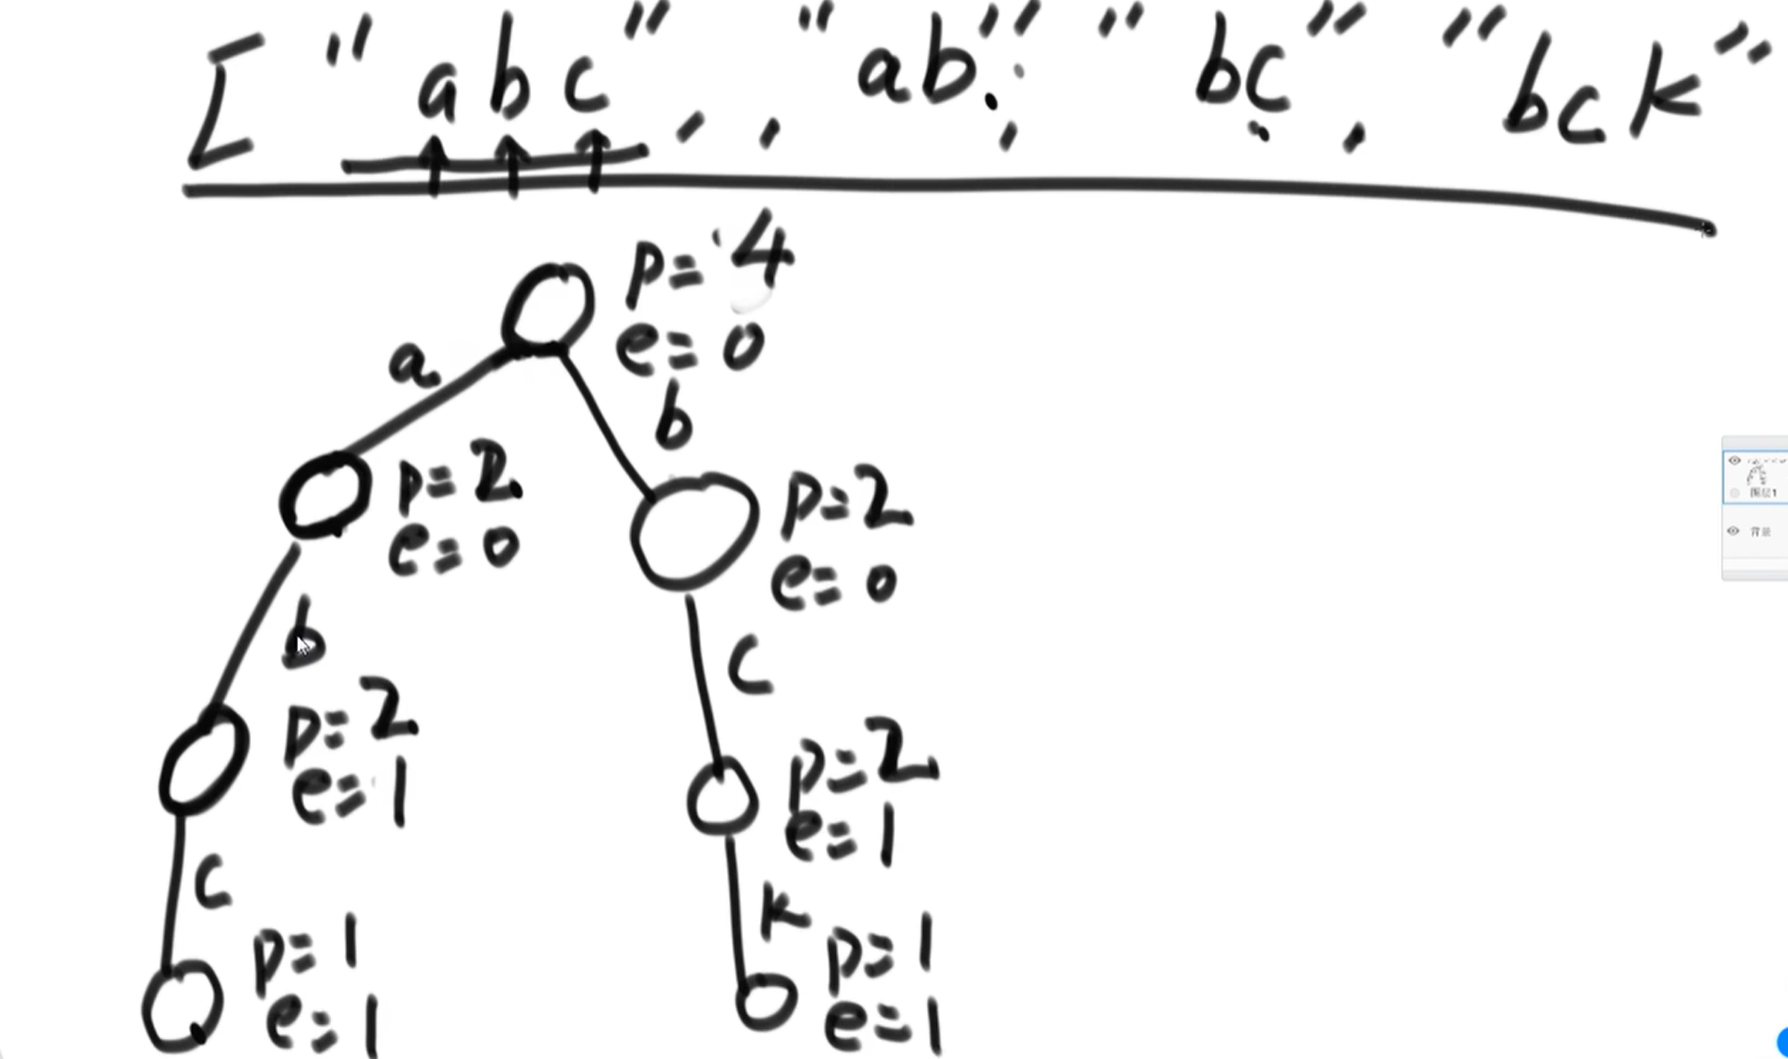 ["abc", , "ab", "bc", "bck"
p=4
e=0
a
b
p=2
e=0
p=2
e=0
b
c
p=2
e=1
p=2
e=1
c
k
p=1
e=1
p=1
e=1
图层1
背景